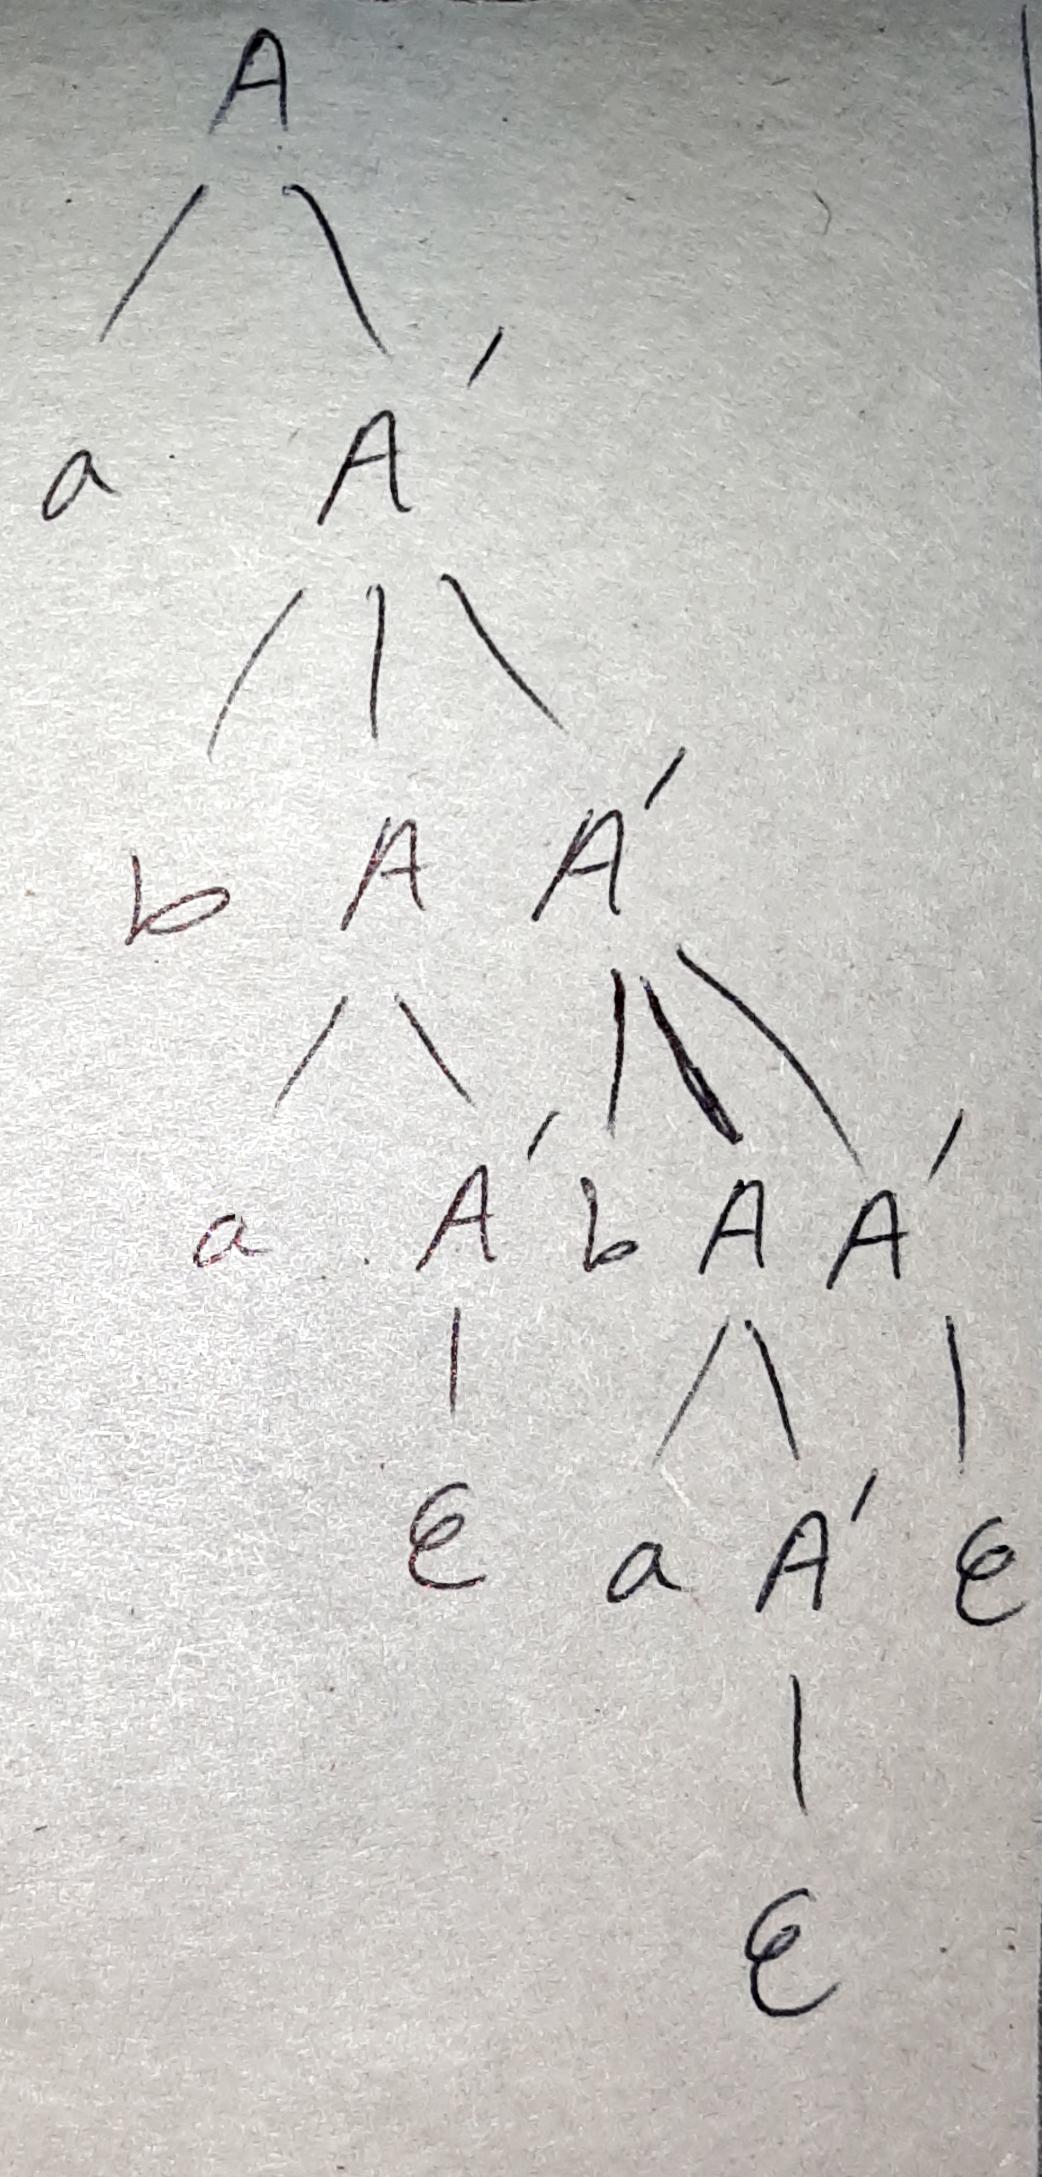 A
a A′
b A A′
a A′ b A A′
ϵ a A′ ϵ
ϵ